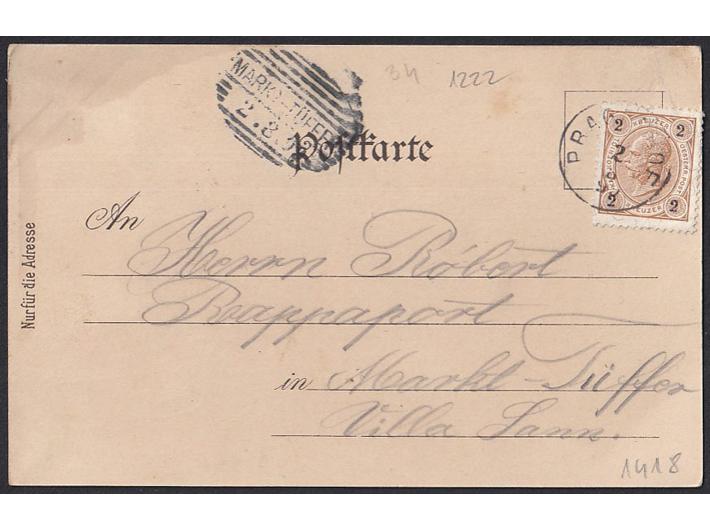 34 1222
MARKT-TÜFFER
2.8.
Postkarte
2 KREUZER 2
2 2
An
Herrn Robert
Rappaport
in Markt-Tüffer
Villa Sann.
Nur für die Adresse
1418